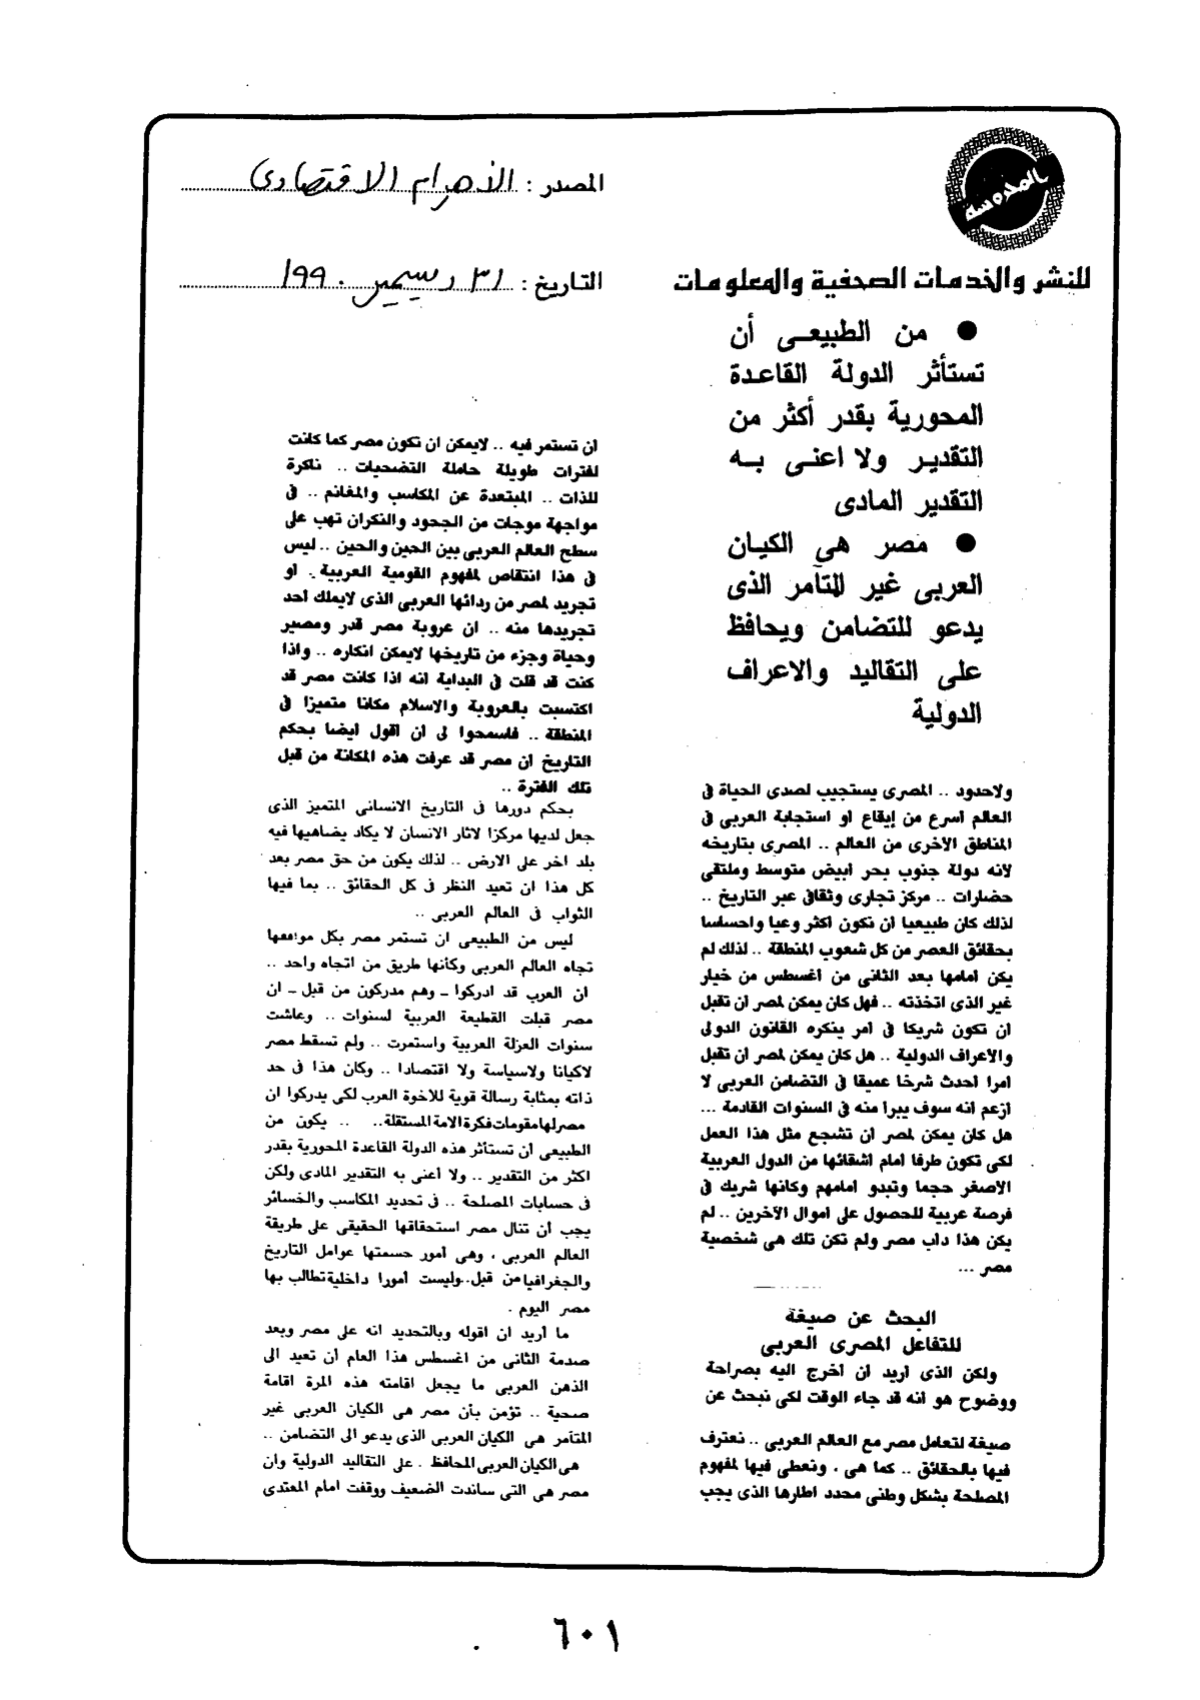 المحروسة
للنشر والخدمات الصحفية والمعلومات
المصدر : الأهرام الاقتصادى
التاريخ : ٣١ ديسمبر ١٩٩٠
● من الطبيعى أن
تستأثر الدولة القاعدة
المحورية بقدر أكثر من
التقدير ولا اعنى به
التقدير المادى
● مصر هي الكيان
العربى غير المتآمر الذى
يدعو للتضامن ويحافظ
على التقاليد والاعراف
الدولية
ولاحدود .. المصرى يستجيب لصدى الحياة فى
العالم أسرع من إيقاع أو استجابة العربى فى
المناطق الأخرى من العالم .. المصرى بتاريخه
لانه دولة جنوب بحر ابيض متوسط وملتقى
حضارات .. مركز تجارى وثقافى عبر التاريخ ..
لذلك كان طبيعيا ان تكون اكثر وعيا واحساسا
بحقائق العصر من كل شعوب المنطقة .. لذلك لم
يكن امامها بعد الثانى من اغسطس من خيار
غير الذى اتخذته .. فهل كان يمكن لمصر ان تقبل
ان تكون شريكا فى أمر ينكره القانون الدولى
والأعراف الدولية .. هل كان يمكن لمصر ان تقبل
امرا احدث شرخا عميقا فى التضامن العربى لا
ازعم انه سوف يبرا منه فى السنوات القادمة ...
هل كان يمكن لمصر ان تشجع مثل هذا العمل
لكى تكون طرفا امام اشقائها من الدول العربية
الاصغر حجما وتبدو امامهم وكانها شريك فى
فرصة عربية للحصول على اموال الآخرين .. لم
يكن هذا داب مصر ولم تكن تلك هى شخصية
مصر ...
البحث عن صيغة
للتفاعل المصرى العربى
ولكن الذى اريد ان اخرج اليه بصراحة
ووضوح هو انه قد جاء الوقت لكى نبحث عن
صيغة لتعامل مصر مع العالم العربى .. نعترف
فيها بالحقائق .. كما هى ، ونعطى فيها لمفهوم
المصلحة بشكل وطنى محدد اطارها الذى يجب
ان تستمر فيه .. لايمكن ان تكون مصر كما كانت
لفترات طويلة حاملة التضحيات .. ناكرة
للذات .. المبتعدة عن المكاسب والمغانم .. فى
مواجهة موجات من الجحود والنكران تهب على
سطح العالم العربى بين الحين والحين .. ليس
فى هذا انتقاص لمفهوم القومية العربية . او
تجريد لمصر من ردائها العربى الذى لايملك احد
تجريدها منه .. ان عروبة مصر قدر ومصير
وحياة وجزء من تاريخها لايمكن انكاره .. واذا
كنت قد قلت فى البداية انه اذا كانت مصر قد
اكتسبت بالعروبة والاسلام مكانا متميزا فى
المنطقة .. فاسمحوا لى ان اقول ايضا بحكم
التاريخ ان مصر قد عرفت هذه المكانة من قبل
تلك الفترة ..
بحكم دورها فى التاريخ الانسانى المتميز الذى
جعل لديها مركزا لاثار الانسان لا يكاد يضاهيها فيه
بلد اخر على الارض .. لذلك يكون من حق مصر بعد
كل هذا ان تعيد النظر فى كل الحقائق .. بما فيها
الثواب فى العالم العربى ..
ليس من الطبيعى ان تستمر مصر بكل مواقعها
تجاه العالم العربى وكأنها طريق من اتجاه واحد ..
ان العرب قد ادركوا ـ وهم مدركون من قبل ـ ان
مصر قبلت القطيعة العربية لسنوات .. وعاشت
سنوات العزلة العربية واستمرت .. ولم تسقط مصر
لاكيانا ولاسياسة ولا اقتصادا .. وكان هذا فى حد
ذاته بمثابة رسالة قوية للاخوة العرب لكى يدركوا ان
مصر لها مقومات فكرة الامة المستقلة .. .. يكون من
الطبيعى أن تستأثر هذه الدولة القاعدة المحورية بقدر
اكثر من التقدير .. ولا أعنى به التقدير المادى ولكن
فى حسابات المصلحة .. فى تحديد المكاسب والخسائر
يجب أن تنال مصر استحقاقها الحقيقى على طريقة
العالم العربى ، وهى أمور حسمتها عوامل التاريخ
والجغرافيا من قبل .. وليست أمورا داخلية تطالب بها
مصر اليوم .
ما أريد ان اقوله وبالتحديد انه على مصر وبعد
صدمة الثانى من اغسطس هذا العام أن تعيد الى
الذهن العربى ما يجعل اقامته هذه المرة اقامة
صحية .. تؤمن بأن مصر هى الكيان العربى غير
المتآمر هى الكيان العربى الذى يدعو الى التضامن ..
هى الكيان العربى المحافظ . على التقاليد الدولية وان
مصر هى التى ساندت الضعيف ووقفت امام المعتدى
٦٠١